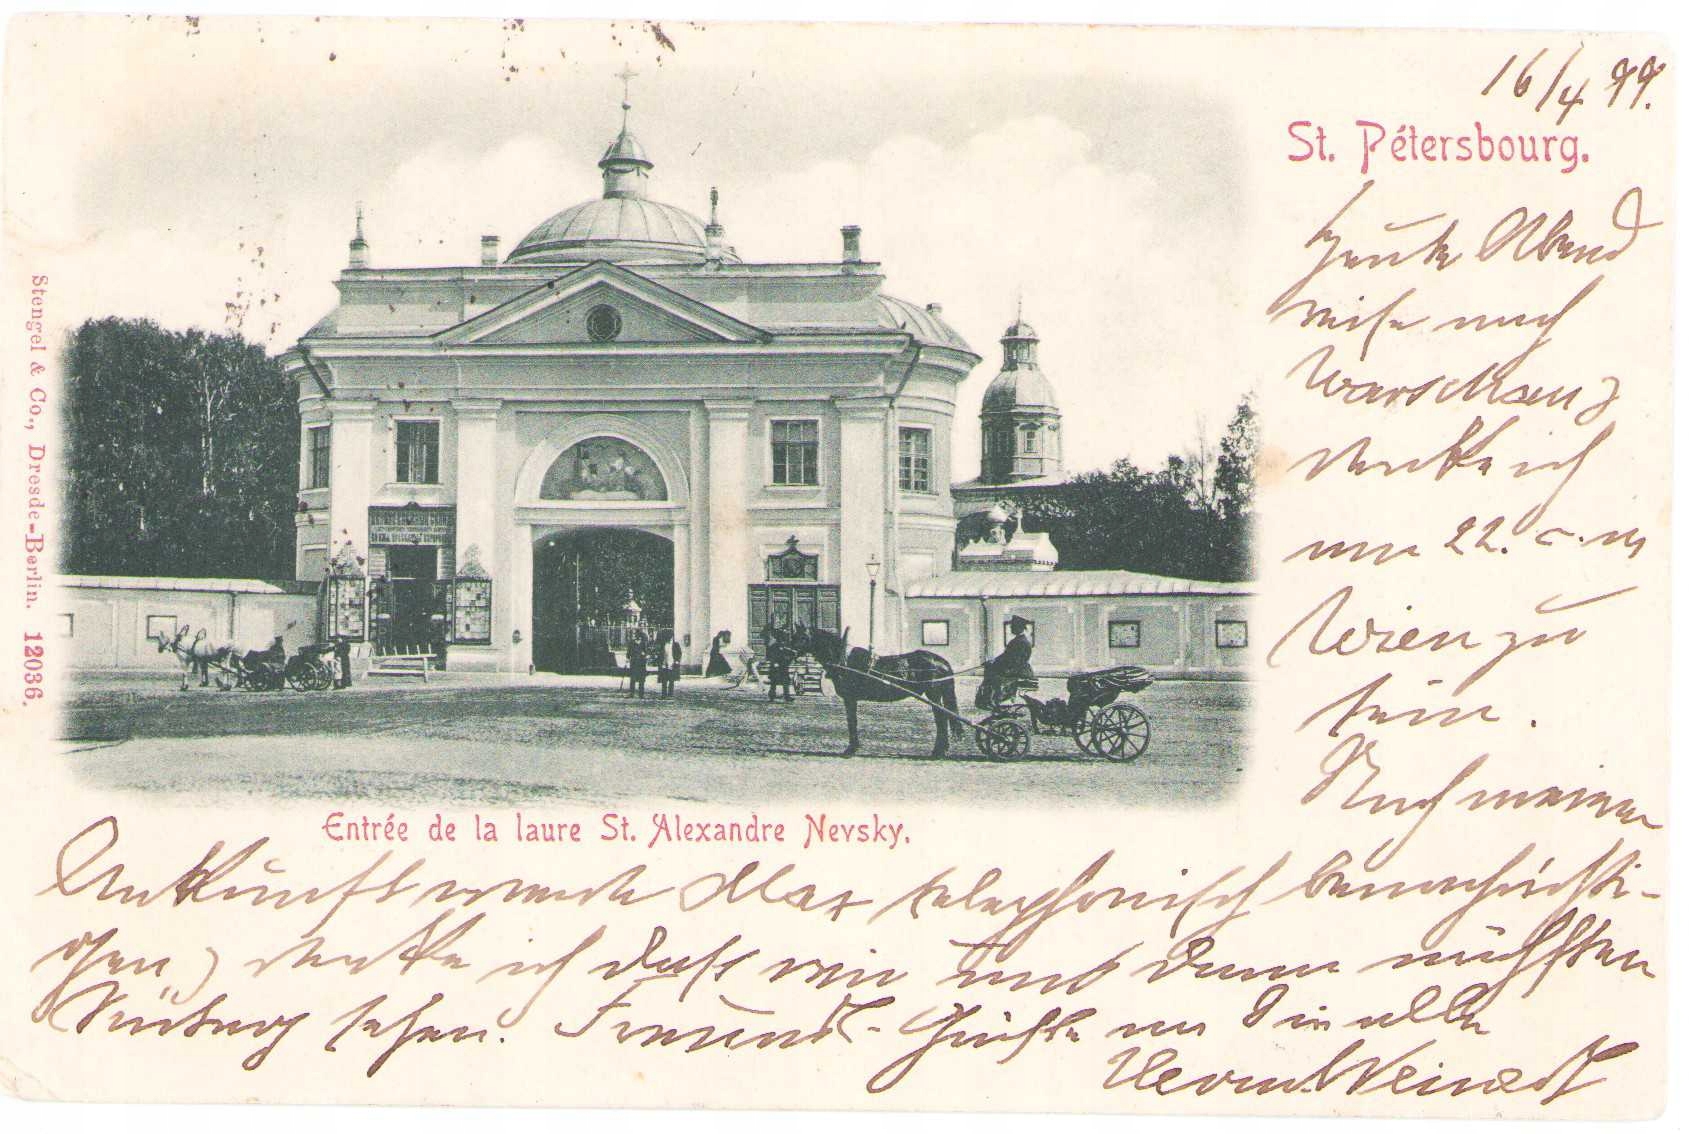 16/4 99.
St. Pétersbourg.
Heute Abend
reise nach
Warschau,
denke ich
am 22. c. in
Wien zu
sein.
Nach meiner
Ankunft werde Max telephonisch benachrichti-
gen, denke ich daß wir uns dann nächsten
Sontag sehen. Freund- Grüße an Sie alle
Entrée de la laure St. Alexandre Nevsky.
Stengel & Co., Dresde-Berlin. 12036.